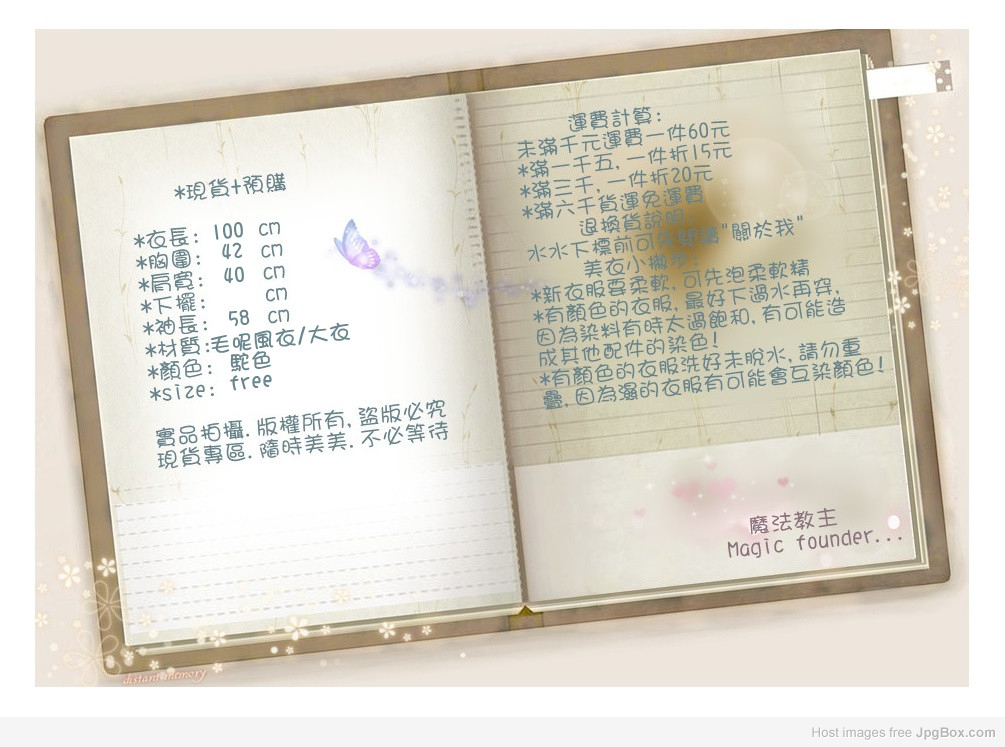 *現貨+預購
*衣長: 100 cm
*胸圍: 42 cm
*肩寬: 40 cm
*下擺: cm
*袖長: 58 cm
*材質:毛呢風衣/大衣
*顏色: 駝色
*size: free
實品拍攝. 版權所有, 盜版必究
現貨專區. 隨時美美. 不必等待
運費計算:
未滿千元運費一件60元
*滿一千五, 一件折15元
*滿三千, 一件折20元
*滿六千貨運免運費
退換貨說明:
水水下標前可先閱讀"關於我"
美衣小撇步:
*新衣服要柔軟, 可先泡柔軟精
*有顏色的衣服, 最好下過水再穿,
因為染料有時太過飽和, 有可能造
成其他配件的染色!
*有顏色的衣服洗好未脫水, 請勿重
疊, 因為濕的衣服有可能會互染顏色!
魔法教主
Magic founder...
distant memory
Host images free JpgBox.com